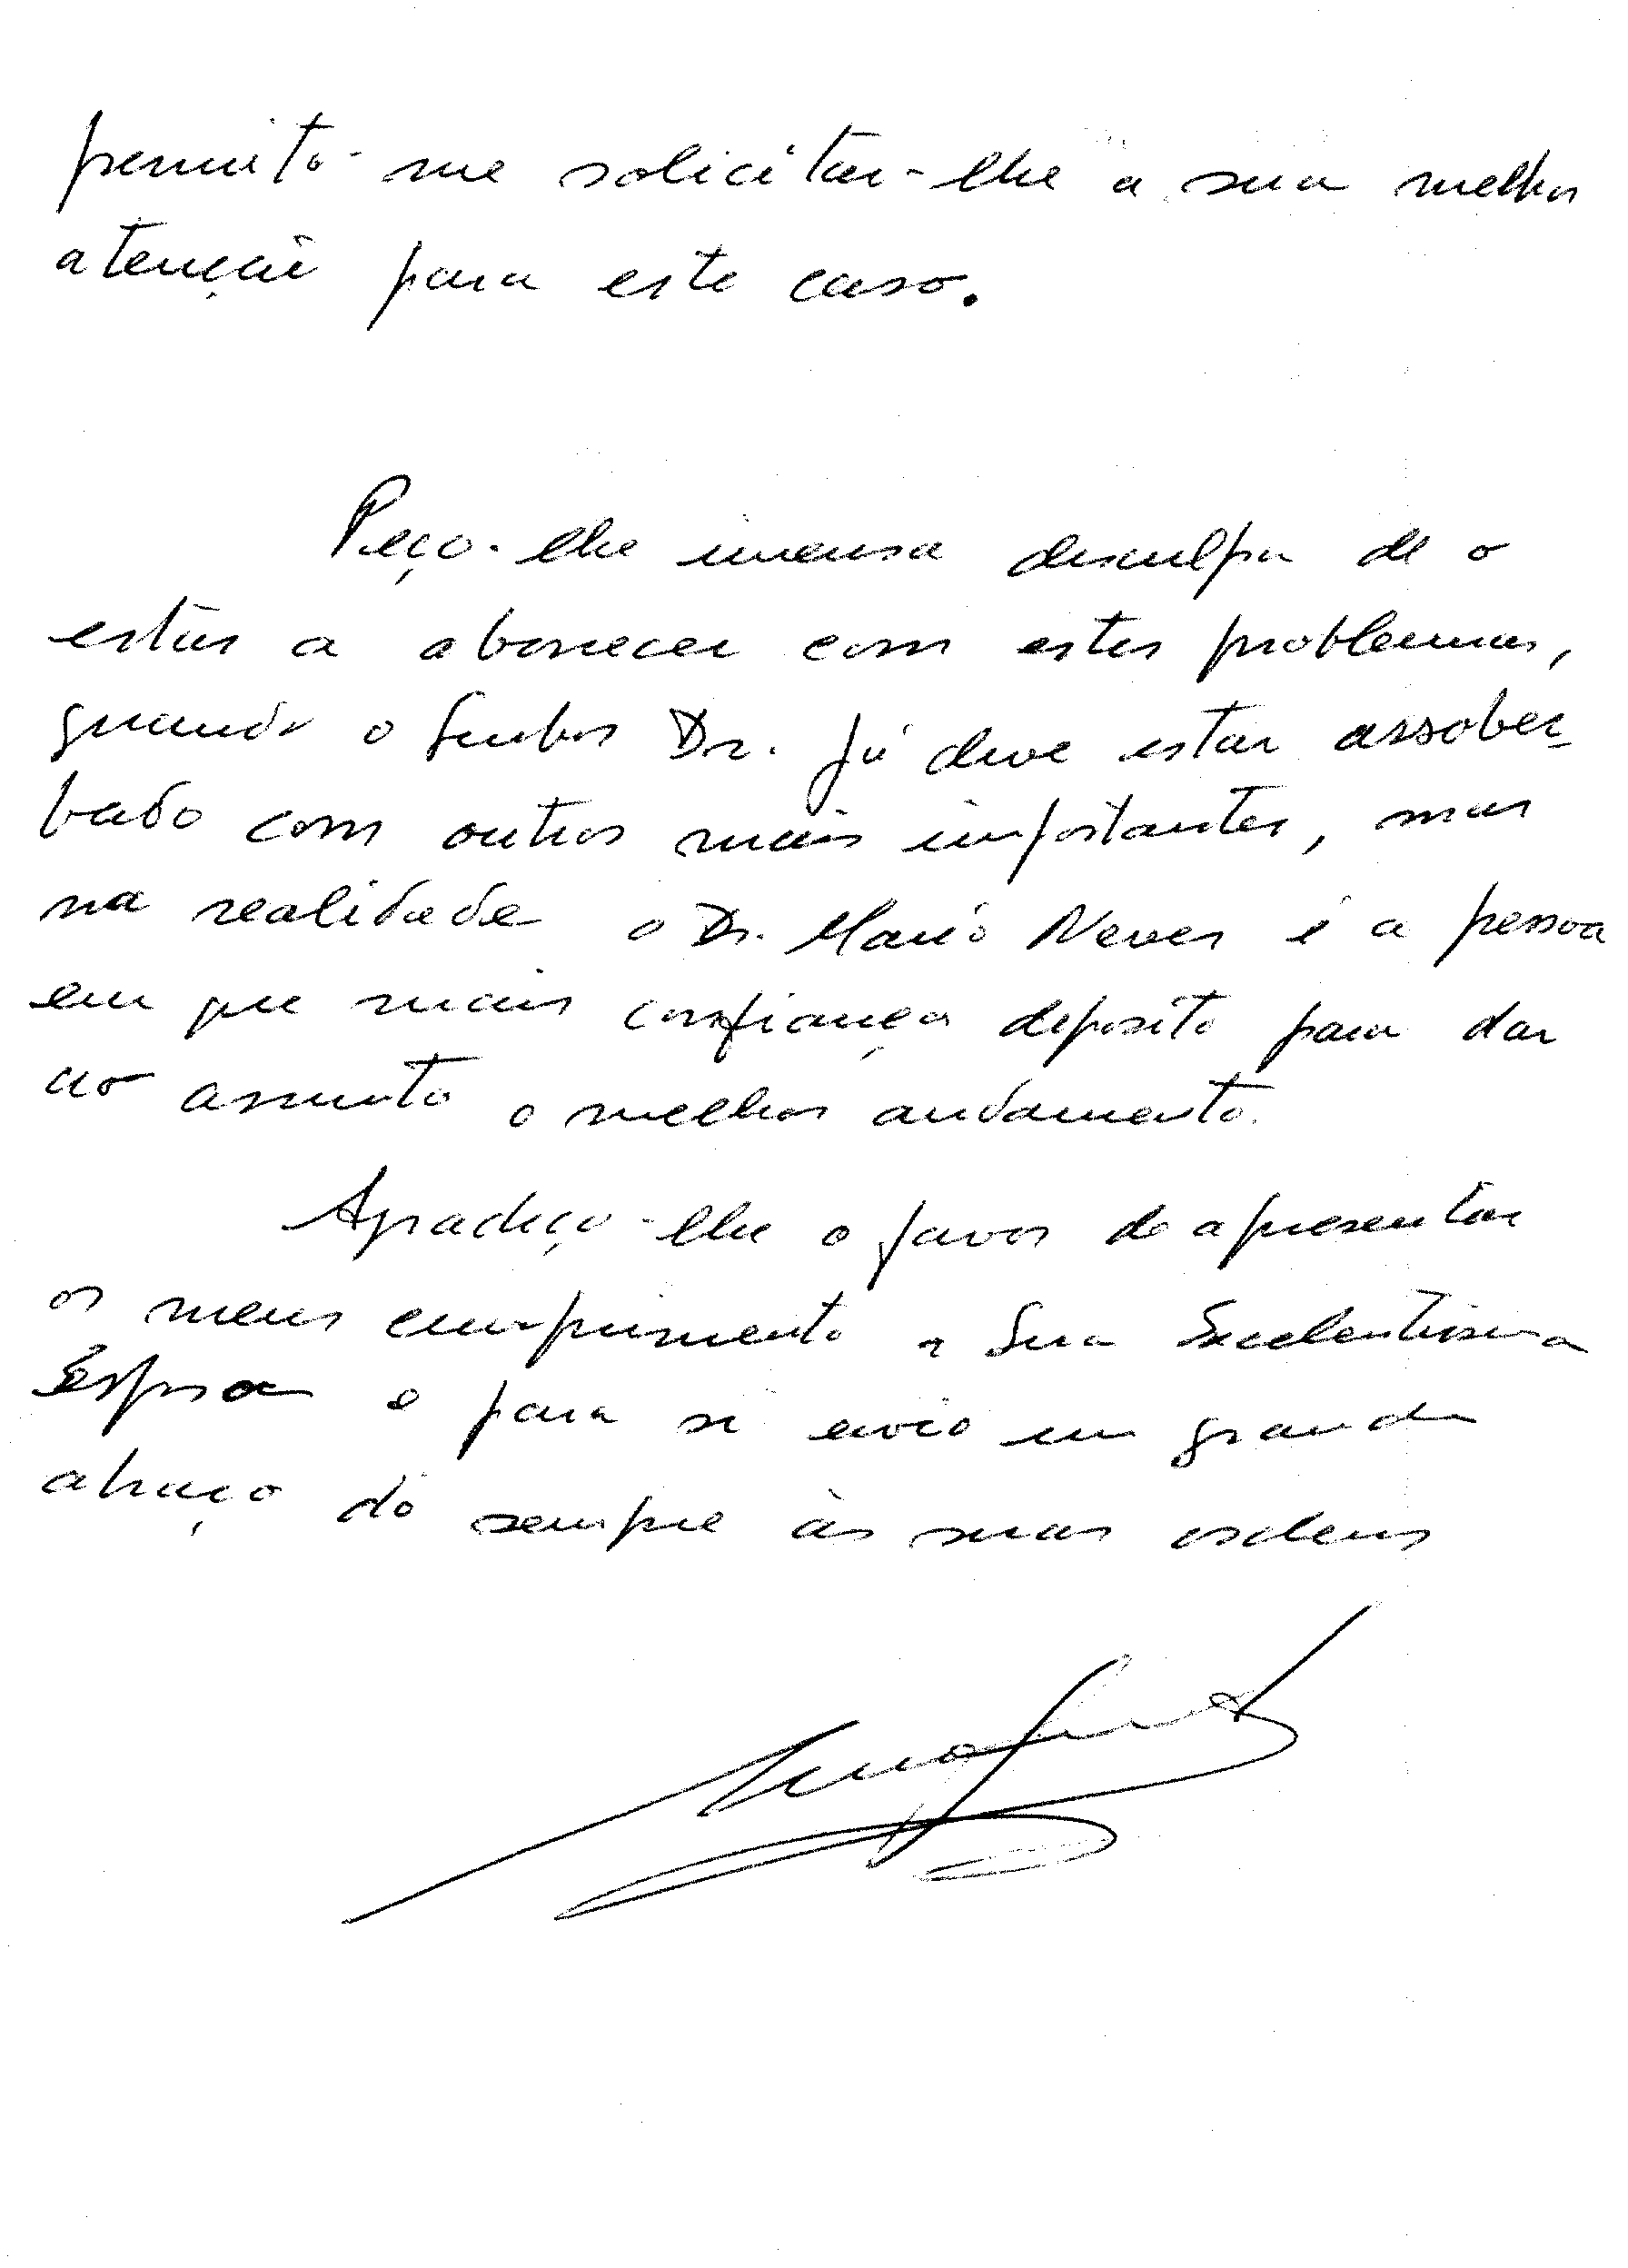 permito-me solicitar-lhe a sua melhor
atenção para este caso.
Peço-lhe imensa desculpa de o
estar a aborrecer com estes problemas,
quando o Senhor Dr. já deve estar assober-
bado com outros mais importantes, mas
na realidade o Dr. Mário Neves é a pessoa
em que mais confiança deposito para dar
ao assunto o melhor andamento.
Agradeço-lhe o favor de apresentar
os meus cumprimentos a Sua Excelentíssima
Esposa e para si envio um grande
abraço do sempre às suas ordens